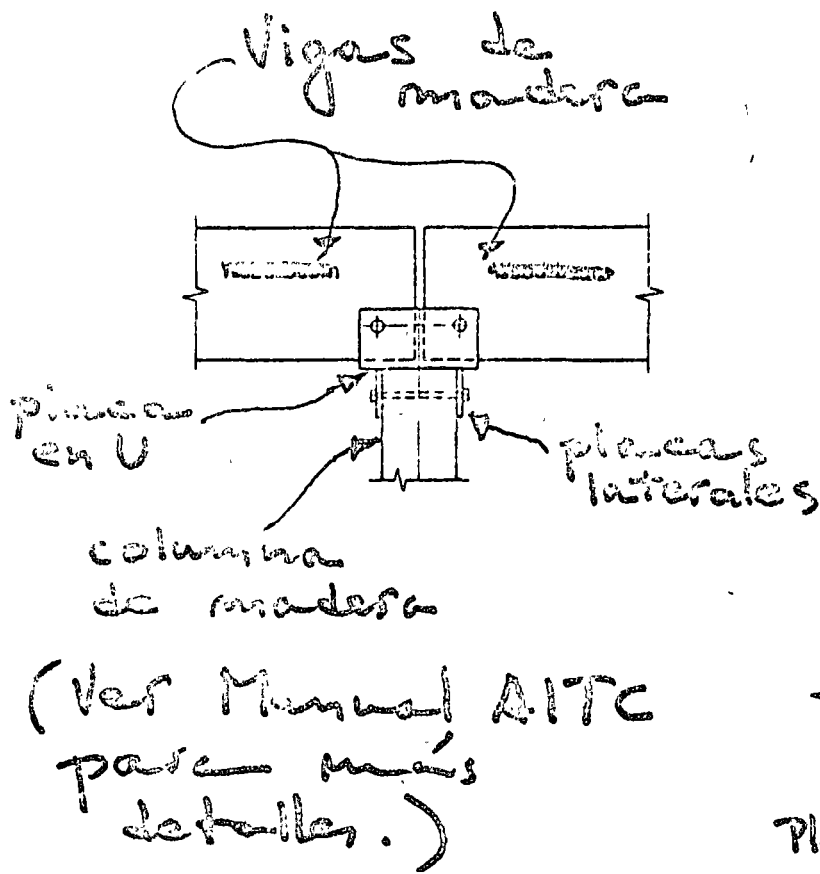 Vigas de
madera
placa
en U
placas
laterales
columna
de madera
(Ver Manual AITC
para más
detalles.)
Pl